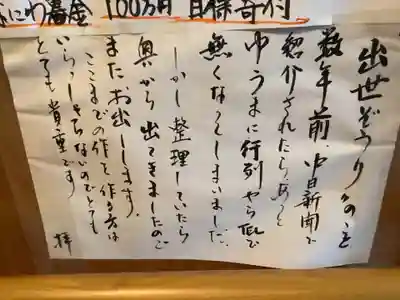 なにわ募金 100万円 目標寄付
出世ぞうりのこと
数年前、中日新聞で
紹介されたら、あっと
ゆうまに行列やらTELで
無くなってしまいました。
しかし整理していたら
奥から出てきましたので
またお出しします。
ここまでの作を作る方は
いらっしゃらないのでとても
とても貴重です。
拝